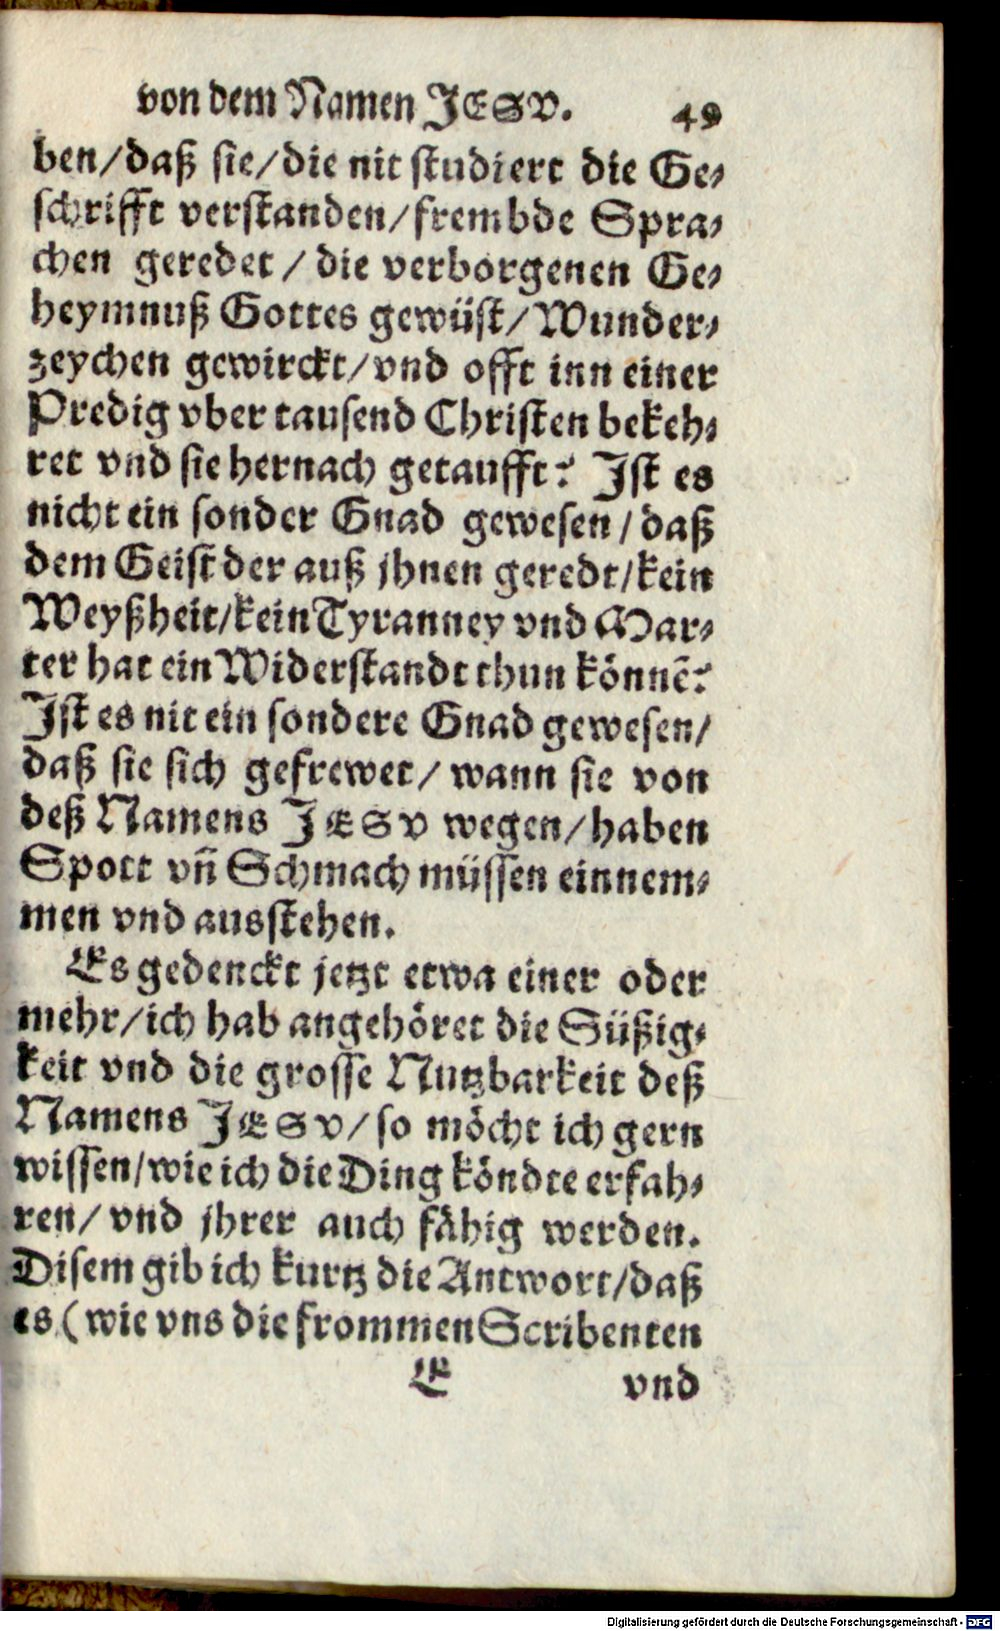 von dem Namen JESV. 49
ben/daß sie/die nit studiert die Ge-
schrifft verstanden/frembde Spra-
chen geredet/die verborgenen Ge-
heymnuß Gottes gewüst/Wunder-
zeychen gewirckt/vnd offt inn einer
Predig vber tausend Christen bekeh-
ret vnd sie hernach getaufft? Ist es
nicht ein sonder Gnad gewesen/daß
dem Geist der auß jhnen geredt/kein
Weyßheit/kein Tyranney vnd Mar-
ter hat ein Widerstandt thun könnẽ?
Ist es nit ein sondere Gnad gewesen/
daß sie sich gefrewet/wann sie von
deß Namens JESV wegen/haben
Spott vñ Schmach müssen einnem-
men vnd ausstehen.
Es gedenckt jetzt etwa einer oder
mehr/ich hab angehöret die Süßig-
keit vnd die grosse Nutzbarkeit deß
Namens JESV/so möcht ich gern
wissen/wie ich die Ding köndte erfah-
ren/vnd jhrer auch fähig werden.
Disem gib ich kurtz die Antwort/daß
es (wie vns die frommen Scribenten
E vnd
Digitalisierung gefördert durch die Deutsche Forschungsgemeinschaft - DFG